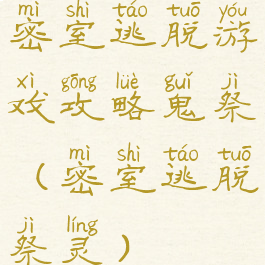 mì shì táo tuō yóu
密室逃脱游
xì gōng lüè guǐ jì
戏攻略鬼祭
mì shì táo tuō
（密室逃脱
jì líng
祭灵）